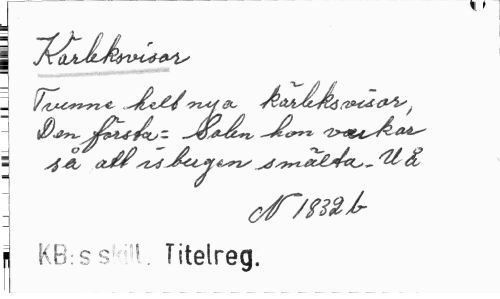 Kärleksvisor
Tvenne helt nya kärleksvisor,
Den första = Solen hon verkar
så att isbergen smälta. U Å
N 1832 b
KB:s skill. Titelreg.